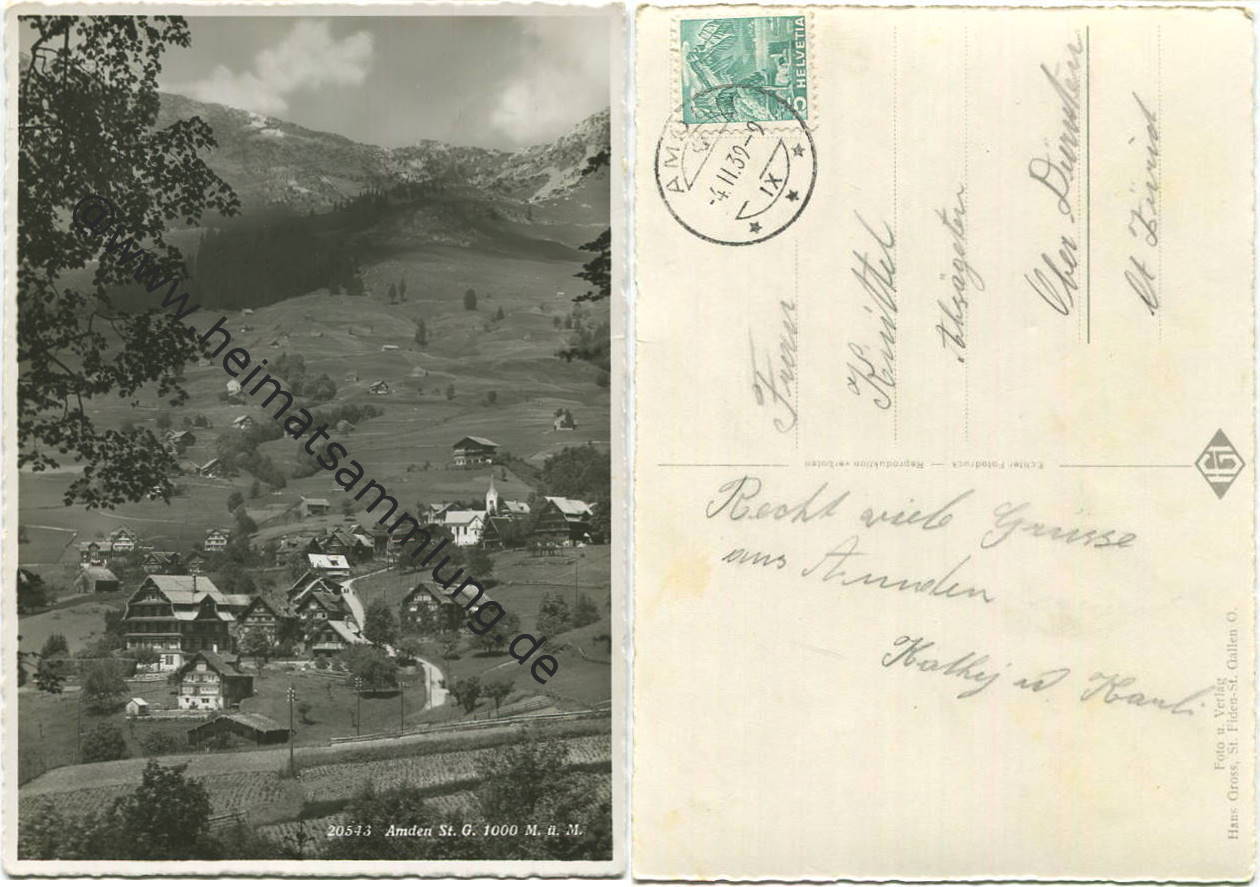 20543 Amden St. G. 1000 M. ü. M.
@www.heimatsammlung.de
HELVETIA
5
-4.II.39-9
IX
Knüttel
Ober Dürnten
Kt Zürich
Echter Fotodruck — Reproduktion verboten
HG
Recht viele Grüsse
aus Amden
Foto u. Verlag
Hans Gross, St. Fiden-St. Gallen O.